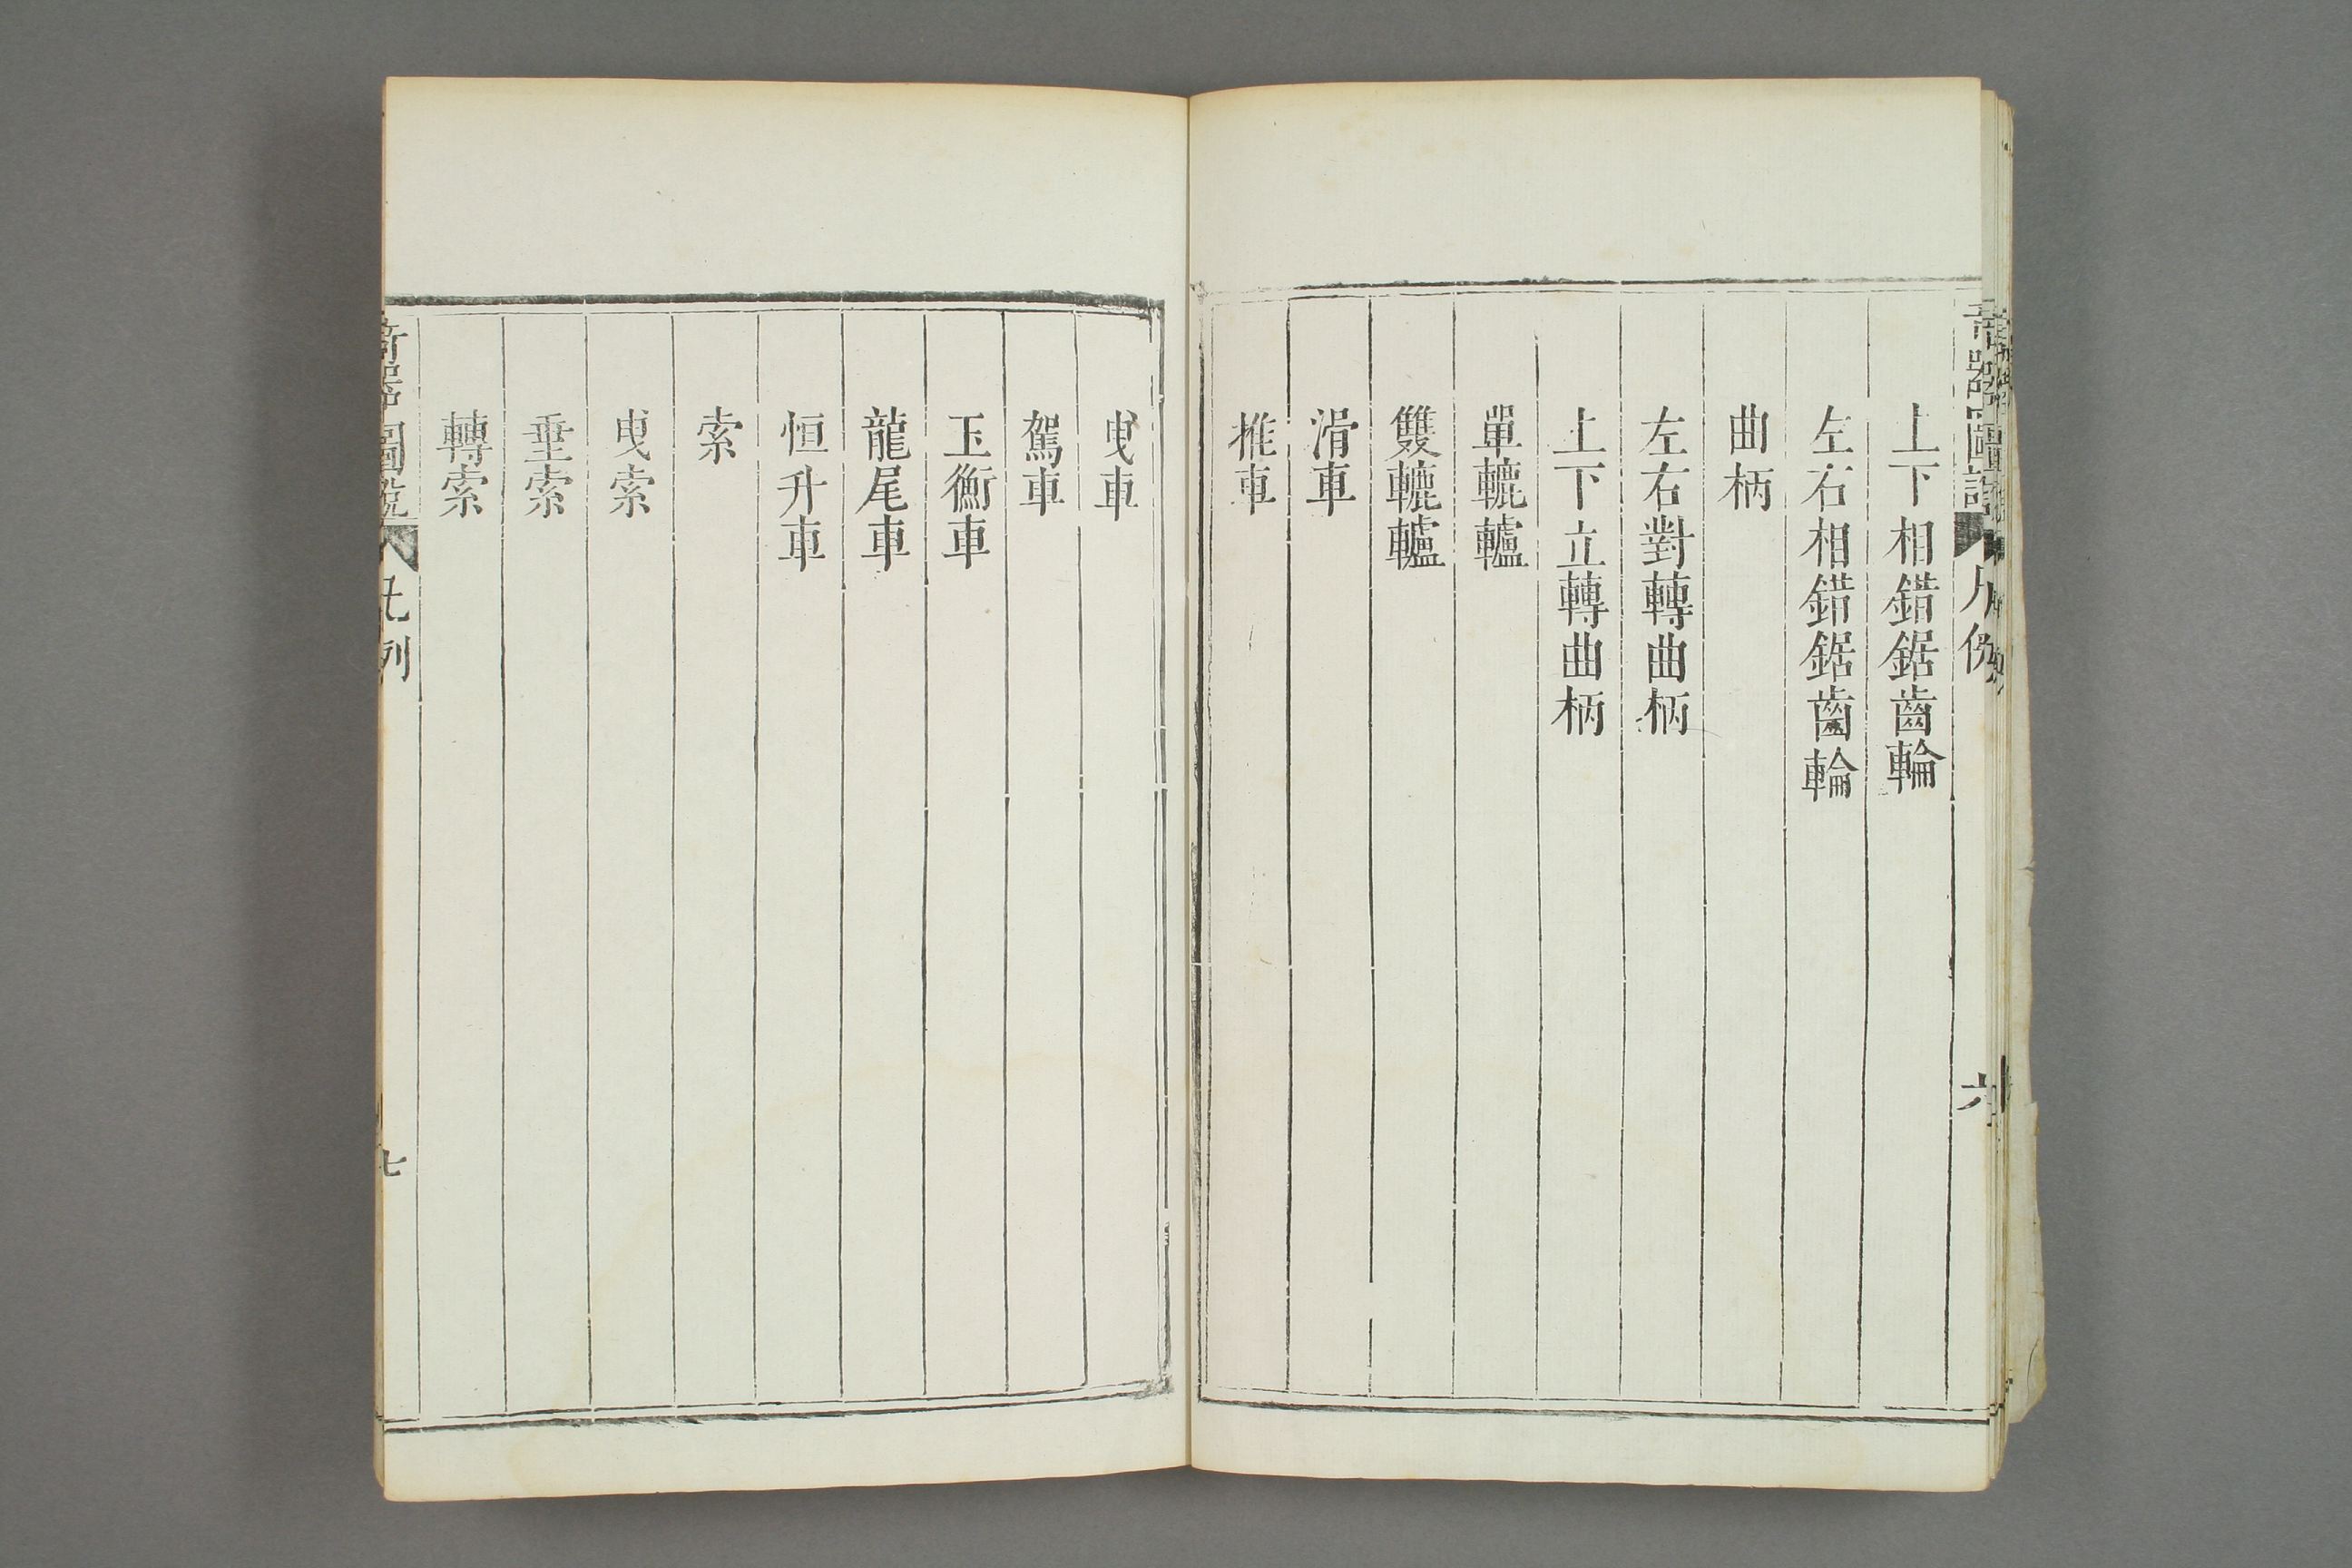 上下相錯鋸齒輪
左右相錯鋸齒輪
曲柄
左右對轉曲柄
上下立轉曲柄
單轆轤
雙轆轤
滑車
推車
曳車
駕車
玉衡車
龍尾車
恒升車
索
曳索
垂索
轉索
七